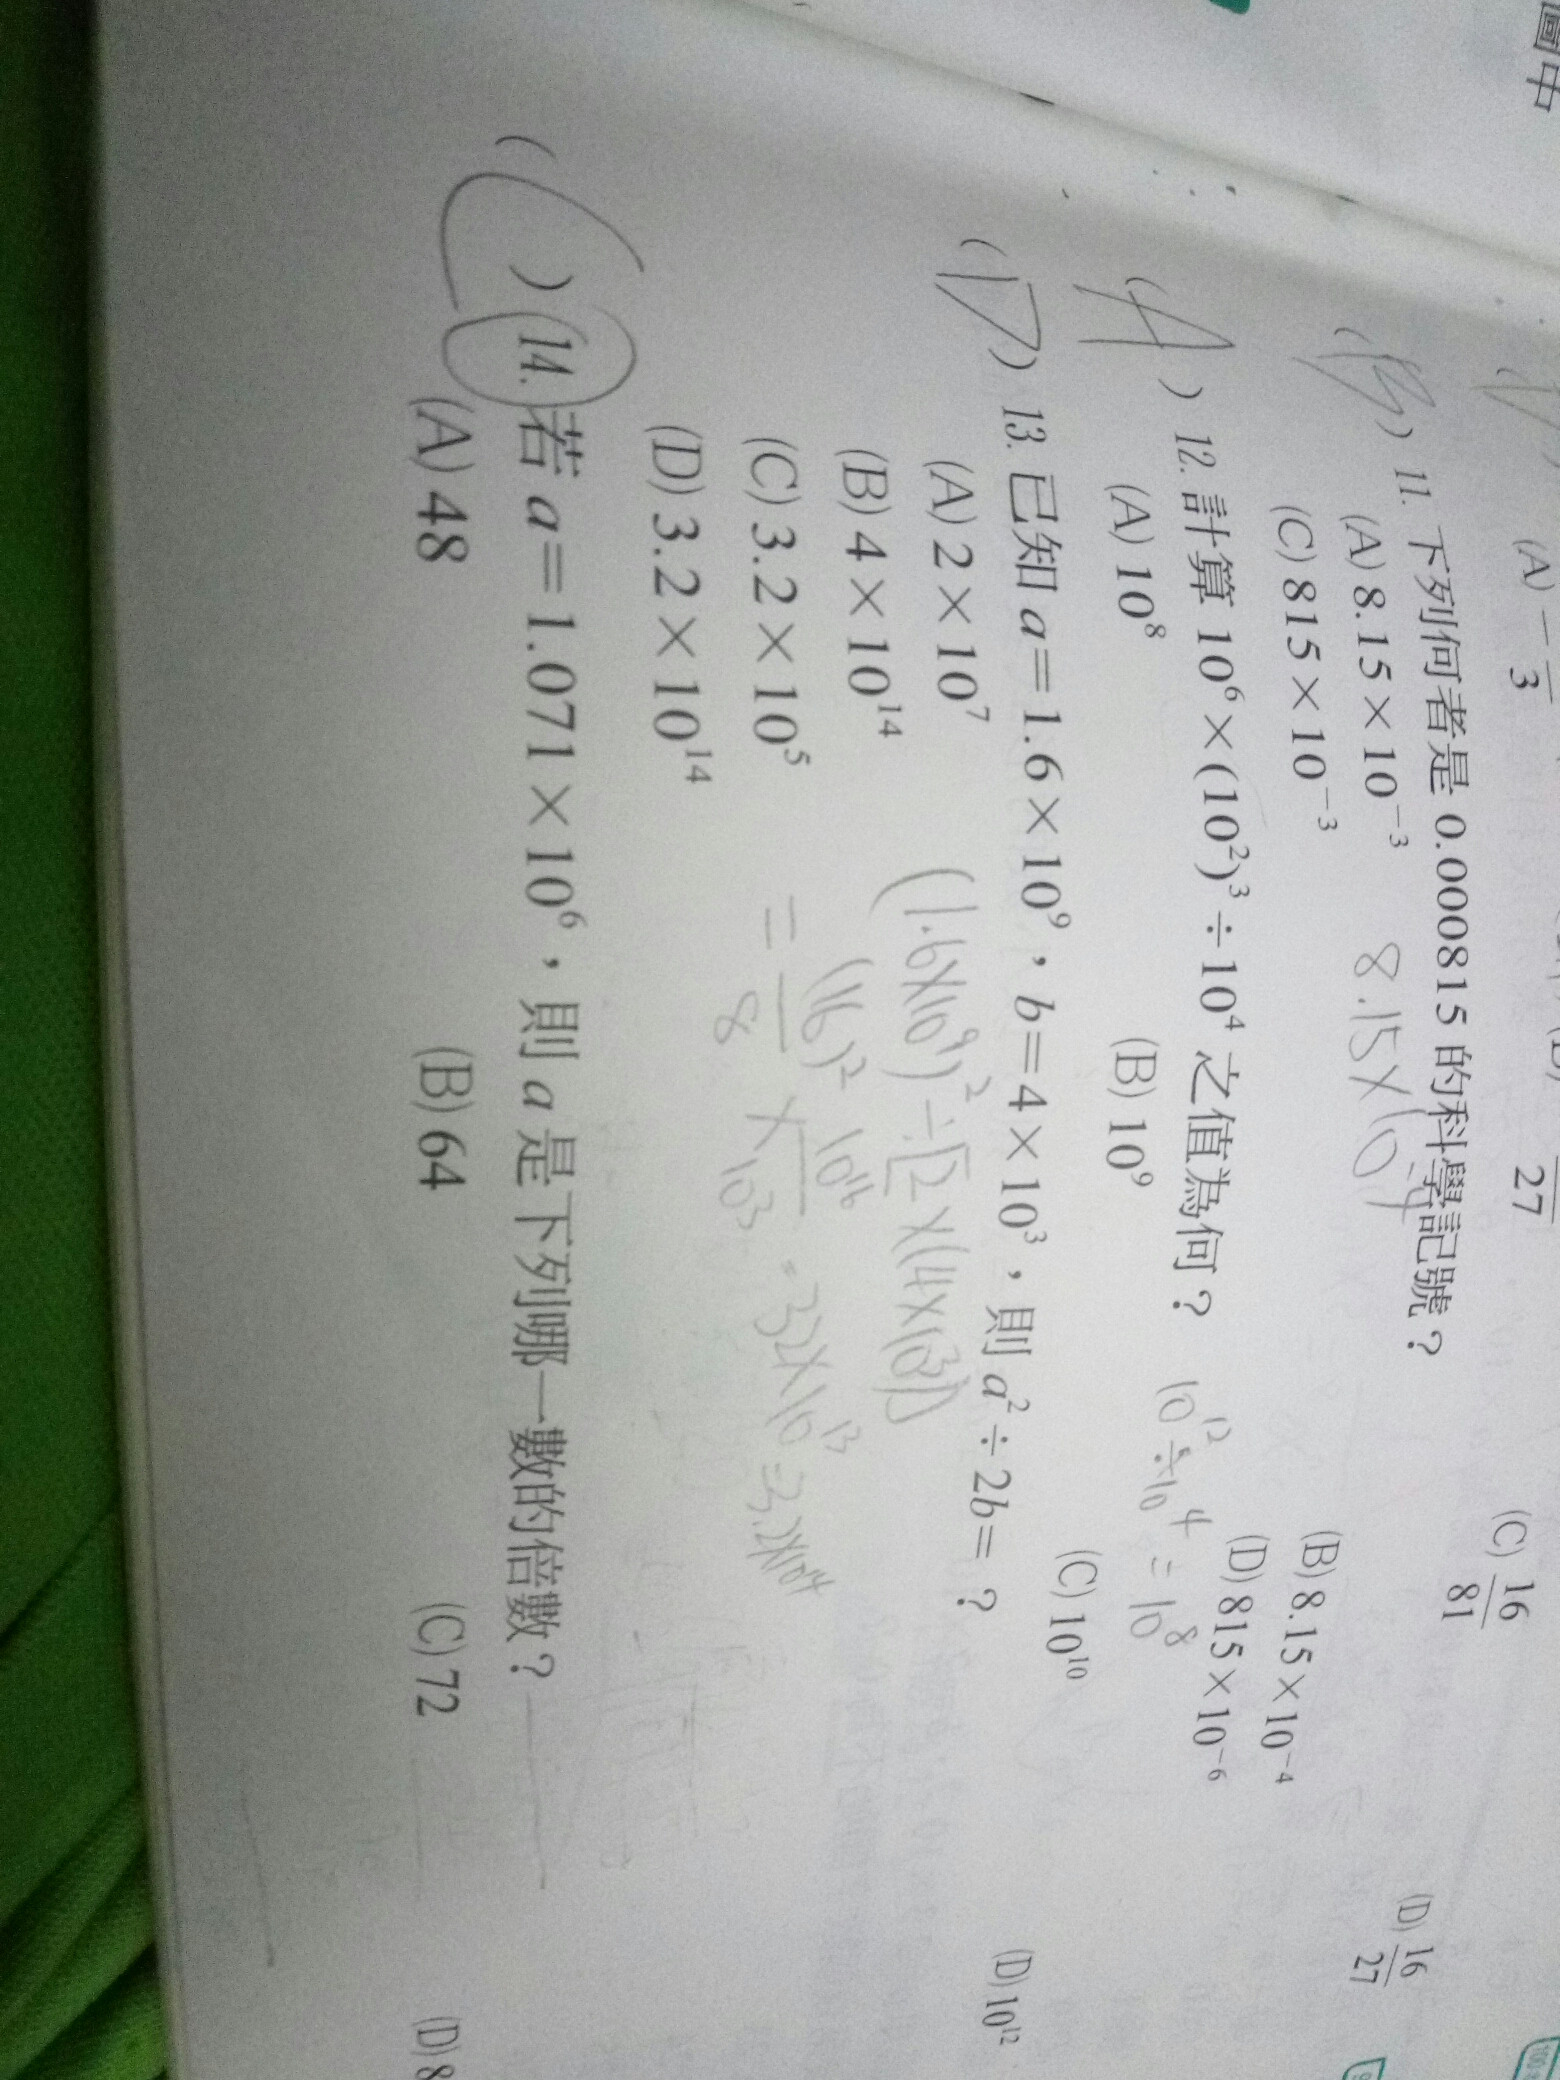 圖中
(A) 3
27
(C) 16/81
(D) 16/27
(B) 11. 下列何者是 0.000815 的科學記號？
(A) 8.15×10⁻³
(B) 8.15×10⁻⁴
(C) 815×10⁻³
(D) 815×10⁻⁶
8.15×10⁻⁴
(A) 12. 計算 10⁶×(10²)³÷10⁴ 之值為何？
10¹²÷10⁴=10⁸
(A) 10⁸
(B) 10⁹
(C) 10¹⁰
(D) 10¹²
(D) 13. 已知 a＝1.6×10⁹，b＝4×10³，則 a²÷2b＝？
(A) 2×10⁷
(B) 4×10¹⁴
(C) 3.2×10⁵
(D) 3.2×10¹⁴
(1.6×10⁹)²÷[2×(4×10³)]
= (16)²/8 × 10¹⁶/10³ = 32×10¹³ = 3.2×10¹⁴
( ) 14. 若 a＝1.071×10⁶，則 a 是下列哪一數的倍數？
(A) 48
(B) 64
(C) 72
(D) 8